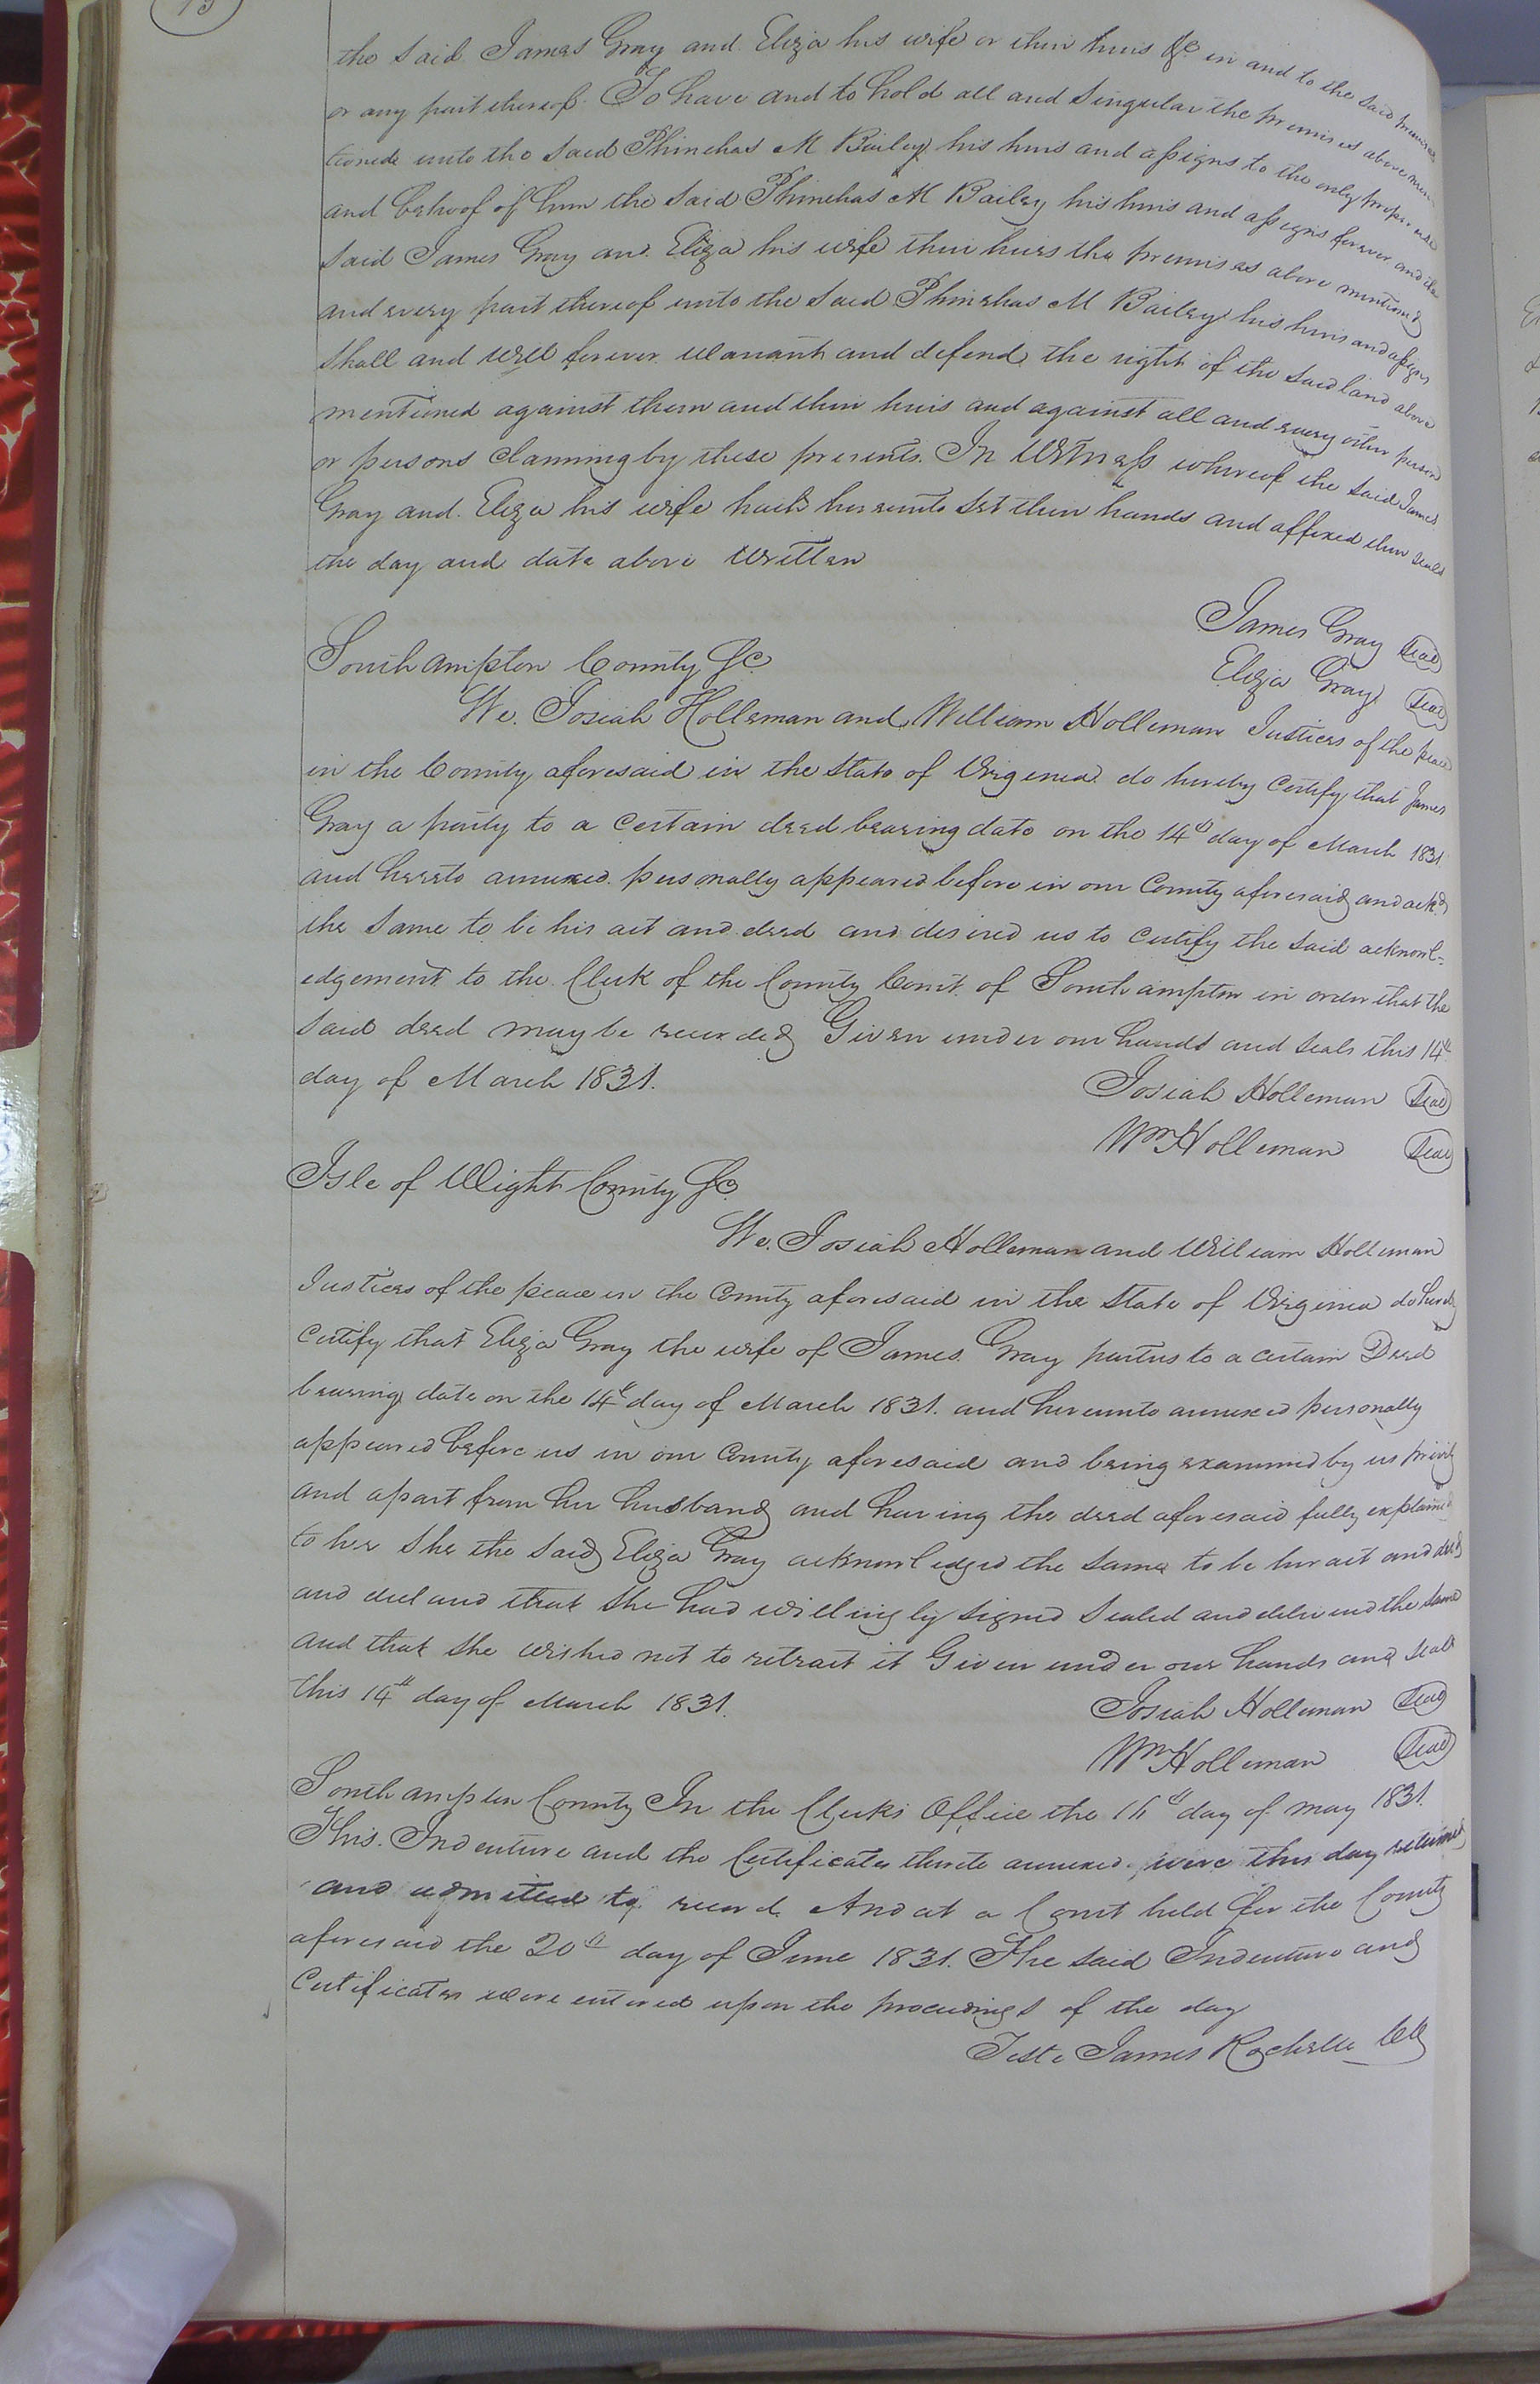 the said James Gray and Eliza his wife or their heirs &c in and to the said premises
or any part thereof. To have and to hold all and singular the premises above men
tioned unto the said Phinehas M Bailey his heirs and assigns to the only proper use
and behoof of him the said Phinehas M Bailey his heirs and assigns forever and the
said James Gray and Eliza his wife their heirs the premises above mentioned
and every part thereof unto the said Phinehas M Bailey his heirs and assigns
shall and will forever warrant and defend the right of the said land above
mentioned against them and their heirs and against all and every other person
or persons claiming by these presents. In Witness whereof the said James
Gray and Eliza his wife hath hereunto set their hands and affixed their seals
the day and date above written
James Gray Seal
Eliza Gray Seal
Southampton County Sc
We. Josiah Holleman and William Holleman Justices of the peace
in the County aforesaid in the State of Virginia do hereby certify that James
Gray a party to a certain deed bearing date on the 14th day of March 1831
and hereto annexed personally appeared before in our County aforesaid and ackd
the same to be his act and deed and desired us to certify the said acknowl=
edgement to the Clerk of the County Court of Southampton in order that the
said deed may be recorded Given under our hands and seals this 14th
day of March 1831.
Josiah Holleman Seal
Wm Holleman Seal
Isle of Wight County Sc
We. Josiah Holleman and William Holleman
Justices of the peace in the County aforesaid in the State of Virginia do hereby
certify that Eliza Gray the wife of James Gray parties to a certain Deed
bearing date on the 14th day of March 1831. and hereunto annexed personally
appeared before us in our County aforesaid and being examined by us privily
and apart from her husband and having the deed aforesaid fully explained
to her she the said Eliza Gray acknowledged the same to be her act and deed
and declared that she had willingly signed sealed and delivered the same
and that she wished not to retract it Given under our hands and seals
this 14th day of March 1831.
Josiah Holleman Seal
Wm Holleman Seal
Southampton County In the Clerks Office the 16th day of may 1831.
This Indenture and the Certificates thereto annexed were this day returned
and admitted to record And at a Court held for the County
aforesaid the 20th day of June 1831. The said Indenture and
Certificates were entered upon the proceedings of the day
Teste James Rochelle CC